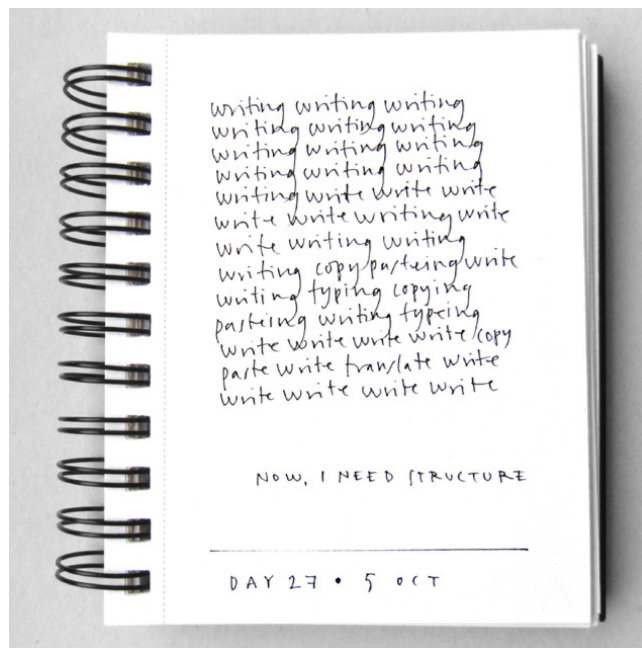 writing writing writing
writing writing writing
writing writing writing
writing writing writing
writing write write write
write write writing write
write writing writing
writing copy pasteing write
writing typing copying
pasteing writing typeing
write write write write copy
paste write translate write
write write write write
NOW, I NEED STRUCTURE
DAY 27 • 5 OCT